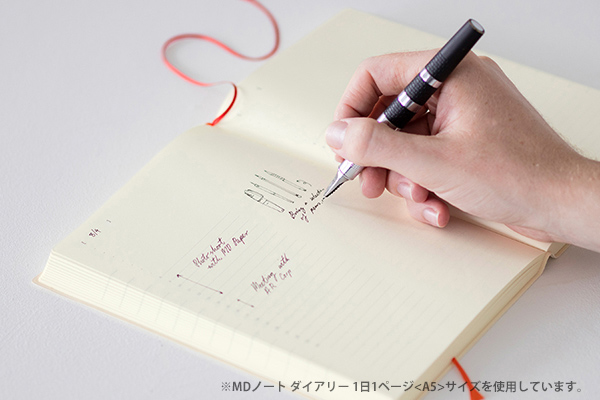 8/4
Bring a selection
of pens,
Photo shoot
with MD Paper
Meeting with
A.R.T Corp
※MDノート ダイアリー 1日1ページ<A5>サイズを使用しています。